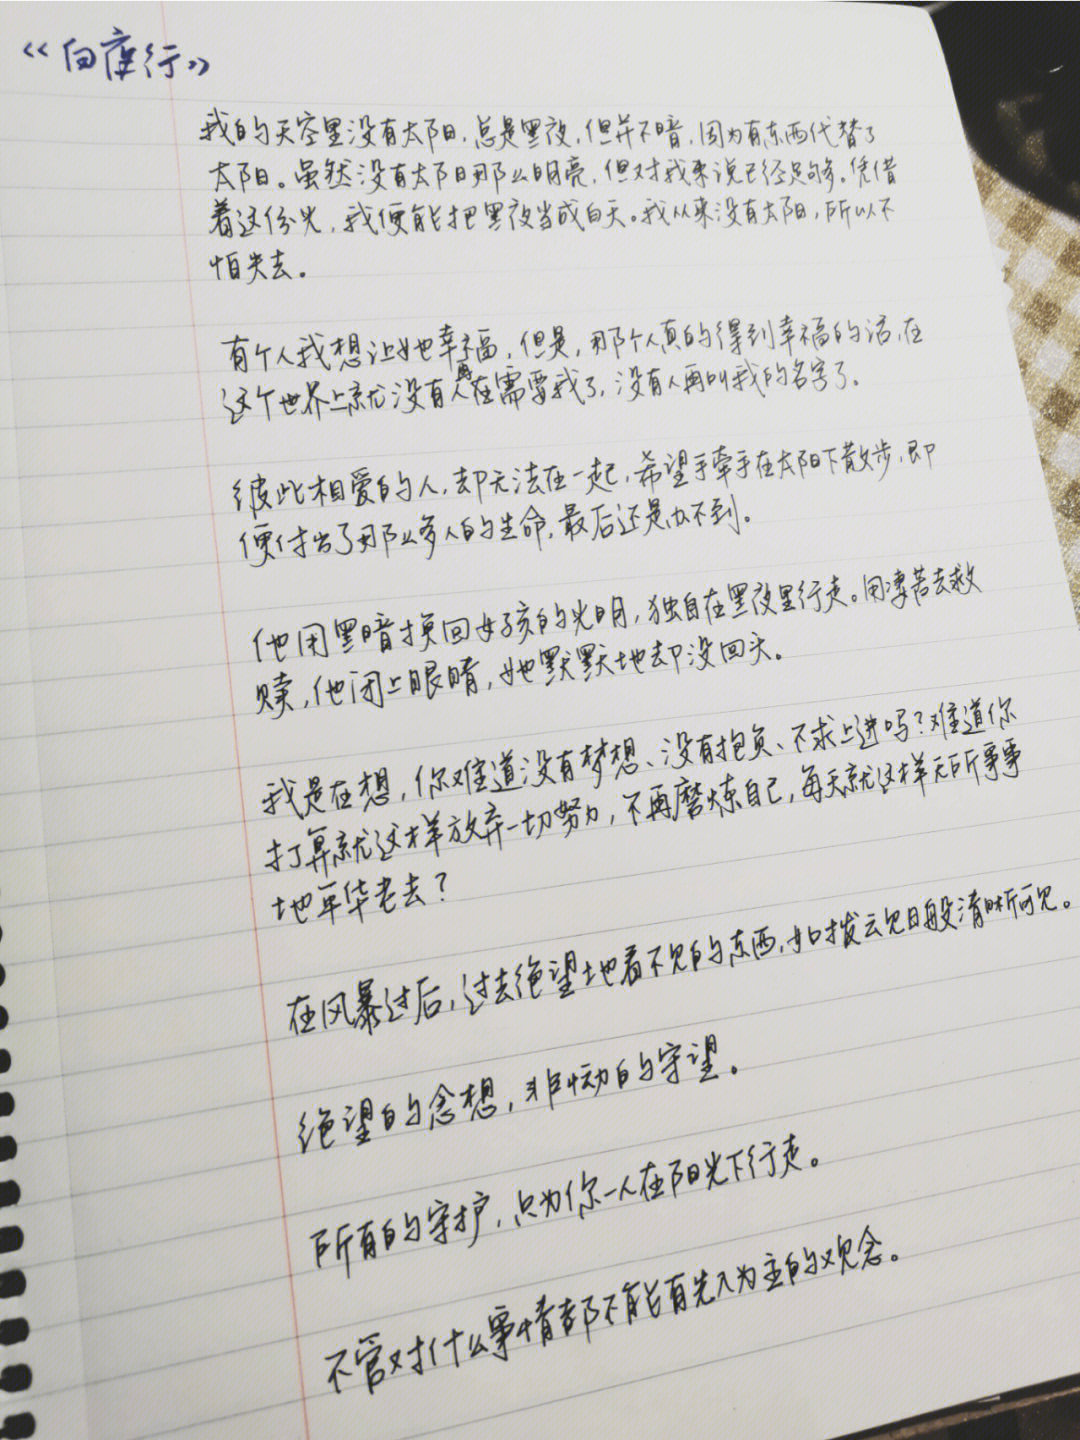 《白夜行》
我的天空里没有太阳，总是黑夜，但并不暗，因为有东西代替了
太阳。虽然没有太阳那么明亮，但对我来说已经足够。凭借
着这份光，我便能把黑夜当成白天。我从来没有太阳，所以不
怕失去。
有个人我想让她幸福，但是，那个人真的得到幸福的话，在
这个世界上就没有人再在需要我了，没有人再叫我的名字了。
彼此相爱的人，却无法在一起，希望手牵手在太阳下散步，即
便付出了那么多人的生命，最后还是办不到。
他用黑暗换回女孩的光明，独自在黑夜里行走。用凄苦去救
赎，他闭上眼睛，她默默地却没回头。
我是在想，你难道没有梦想、没有抱负、不求上进吗？难道你
打算就这样放弃一切努力，不再磨炼自己，每天就这样无所事事
地年华老去？
在风暴过后，过去绝望地看不见的东西，如拨云见日般清晰可见。
绝望的念想，悱恸的守望。
所有的守护，只为你一人在阳光下行走。
不管对什么事情都不能有先入为主的观念。